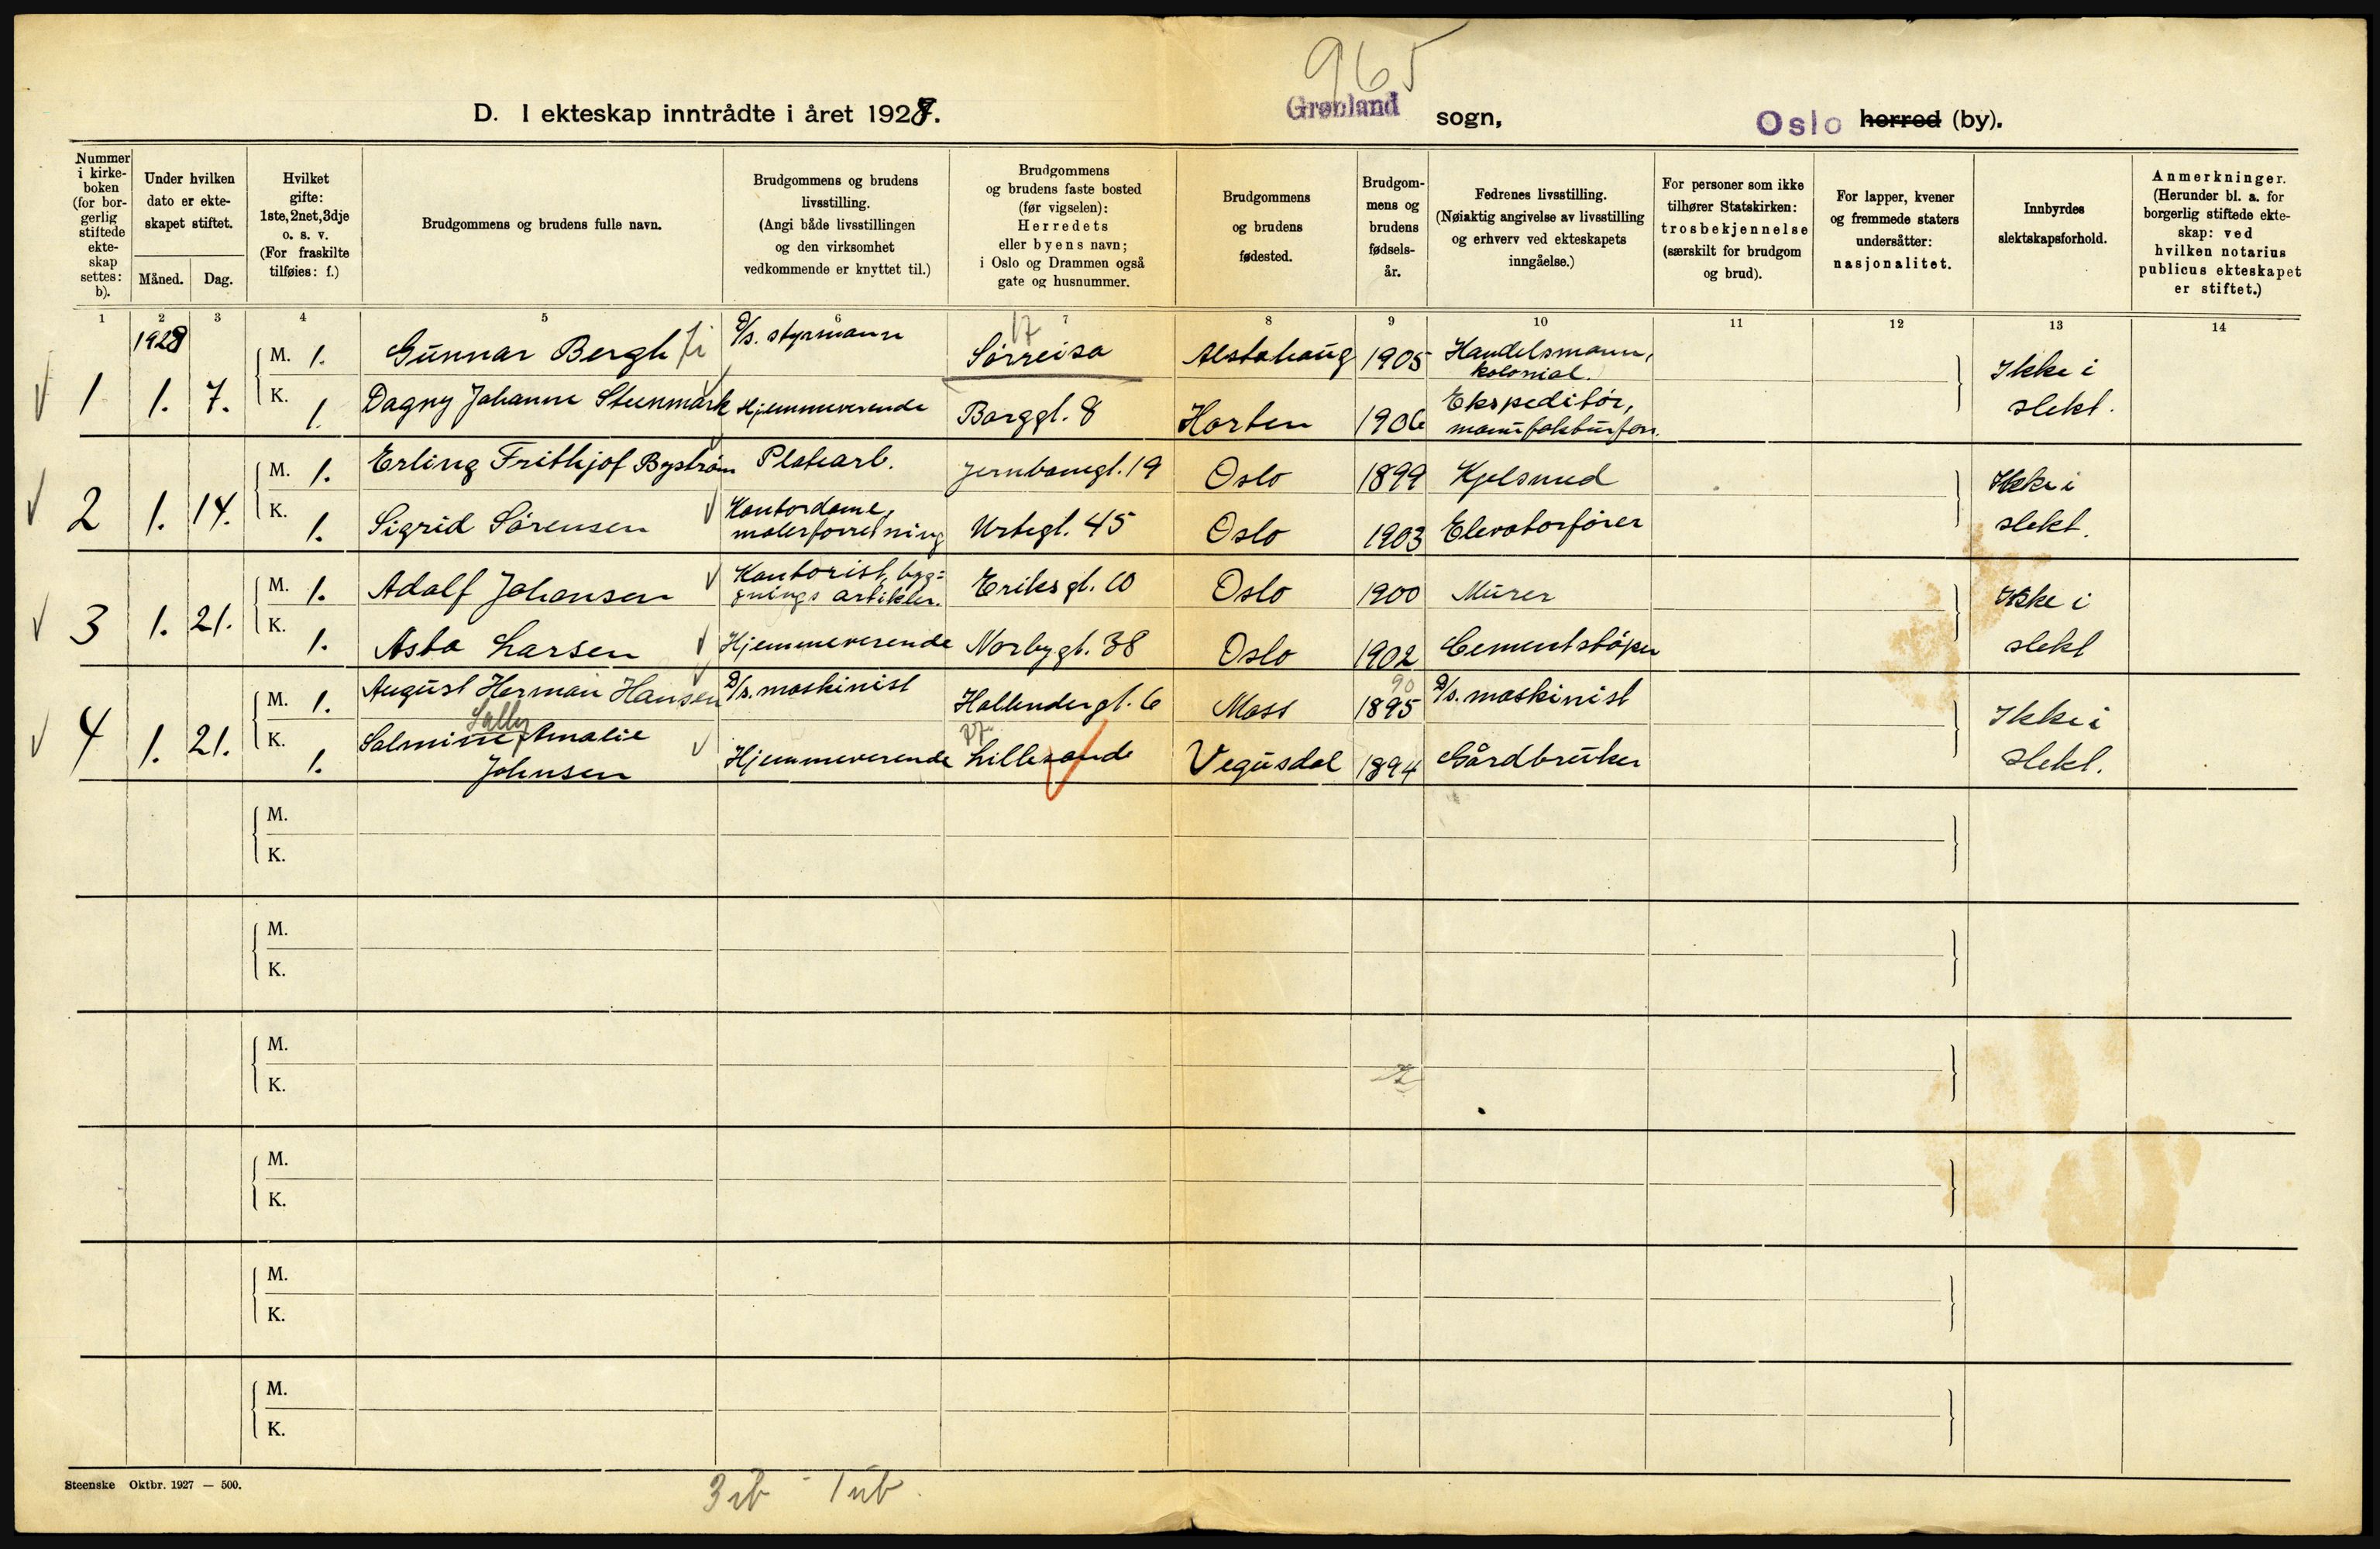 965
D. I ekteskap inntrådte i året 1928.
Grønland sogn,
Oslo herred (by).
Nummer i kirke- boken (for bor- gerlig stiftede ekte- skap settes: b).
Under hvilken dato er ekte- skapet stiftet.
Måned. Dag.
Hvilket gifte: 1ste, 2net, 3dje o. s. v. (For fraskilte tilføies: f.)
Brudgommens og brudens fulle navn.
Brudgommens og brudens livsstilling. (Angi både livsstillingen og den virksomhet vedkommende er knyttet til.)
Brudgommens og brudens faste bosted (før vigselen): Herredets eller byens navn; i Oslo og Drammen også gate og husnummer.
Brudgommens og brudens fødested.
Brudgom- mens og brudens fødsels- år.
Fedrenes livsstilling. (Nøiaktig angivelse av livsstilling og erhverv ved ekteskapets inngåelse.)
For personer som ikke tilhører Statskirken: trosbekjennelse (særskilt for brudgom og brud).
For lapper, kvener og fremmede staters undersåtter: nasjonalitet.
Innbyrdes slektskapsforhold.
Anmerkninger. (Herunder bl. a. for borgerlig stiftede ekte- skap: ved hvilken notarius publicus ekteskapet er stiftet.)
1 2 3 4 5 6 7 8 9 10 11 12 13 14
1928
17
1 1. 7. M. 1. Gunnar Bergh D/s. styrmann Sørreisa Alstahaug 1905 Handelsmann, kolonial. Ikke i slekt.
K. 1. Dagny Johanne Steenmark Hjemmeverende Borggt. 8 Horten 1906 Ekspeditør, manufakturforr.
2 1. 14. M. 1. Erling Frithjof Bystrøm Platearb. Jernbanegt. 19 Oslo 1899 Kjelsmed Ikke i slekt.
K. 1. Sigrid Sørensen Kontordame, malerforretning Urtegt. 45 Oslo 1903 Elevatorfører
3 1. 21. M. 1. Adolf Johansen Kontorist, byg= gnings artikler. Eriksgt. 10 Oslo 1900 Murer Ikke i slekt
K. 1. Asta Larsen Hjemmeverende Norbygt. 38 Oslo 1902 Cementstøper
4 1. 21. M. 1. August Herman Hansen D/s. maskinist Hollendergt. 6 Moss 1895 90 D/s. maskinist Ikke i slekt.
K. 1. Salmine Sally Amalie Johnsen Hjemmeverende Lillesande Vegusdal 1894 Gårdbruker
M.
K.
M.
K.
M.
K.
M.
K.
M.
K.
M.
K.
Steenske Oktbr. 1927 — 500.
3 ib - 1 ub.